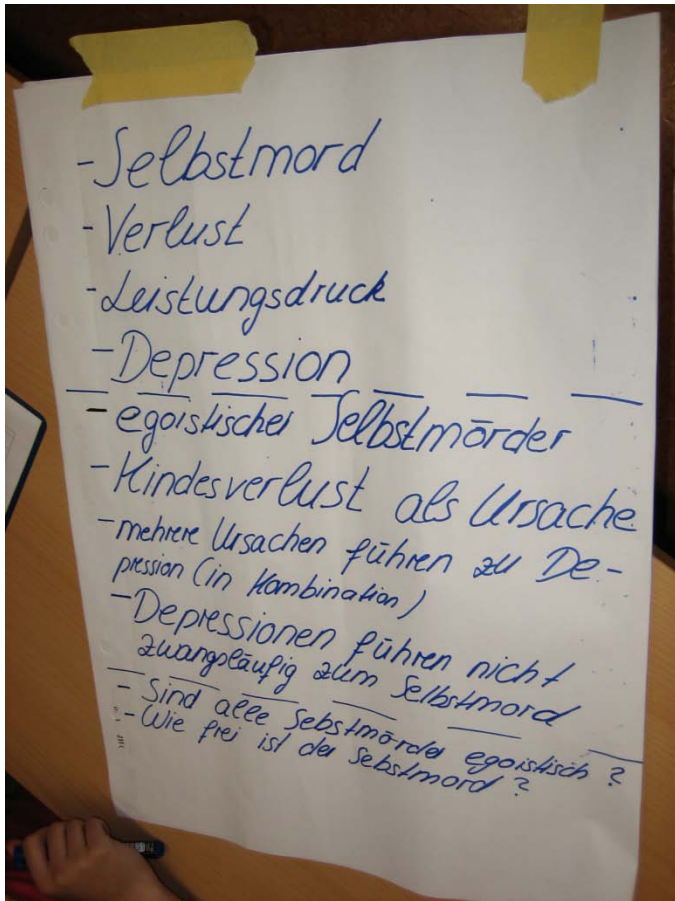 - Selbstmord
- Verlust
- Leistungsdruck
- Depression
- egoistischer Selbstmörder
- Kindesverlust als Ursache
- mehrere Ursachen führen zu De-
pression (in Kombination)
- Depressionen führen nicht
zwangsläufig zum Selbstmord
- Sind alle Sebstmörder egoistisch?
- Wie frei ist der Sebstmord?